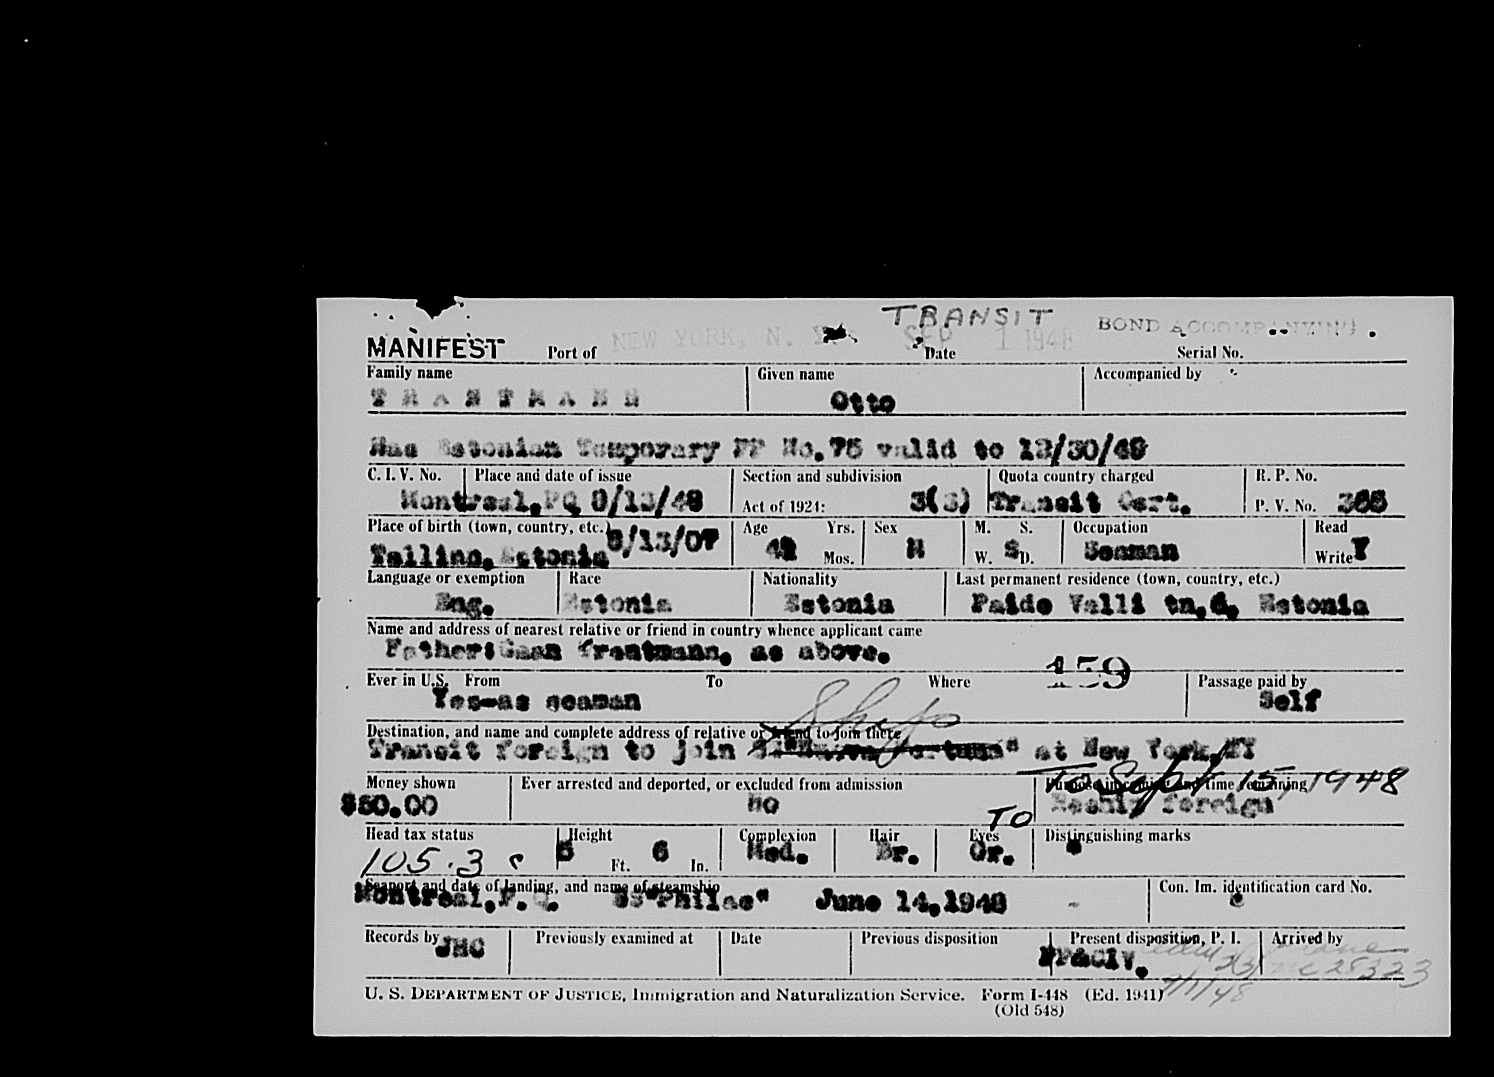 TRANSIT
BOND ACCOMPANYING
MANIFEST Port of NEW YORK, N. Y. Date SEP 1 1948 Serial No.
Family name Given name Accompanied by
T R A N T M A N N Otto
Has Estonian Temporary PP No.75 valid to 12/30/49
C. I. V. No. Place and date of issue Section and subdivision Quota country charged R. P. No.
Montreal,PQ 8/13/48 Act of 1924: 3(3) Transit Cert. P. V. No. 366
Place of birth (town, country, etc.) Age Yrs. Sex M. S. Occupation Read
Tallinn, Estonia /13/07 Mos. M W. S D. Seaman Write Y
Language or exemption Race Nationality Last permanent residence (town, country, etc.)
Eng. Estonia Estonia Paide Valli tn, Estonia
Name and address of nearest relative or friend in country whence applicant came
Father: Trantmann, as above.
159
Ever in U.S. From To Where Passage paid by
Yes-as seaman Self
Ship
Destination, and name and complete address of relative or friend to join there
Transit foreign to join at New York,NY
To Sept 15, 1948
Money shown Ever arrested and deported, or excluded from admission Purpose in coming and time remaining
$50.00 No Reship foreign
TO
Head tax status Height Complexion Hair Eyes Distinguishing marks
105.3 c 5 Ft. 6 In. Med. Br. Gr.
Seaport and date of landing, and name of steamship Con. Im. identification card No.
Montreal,P.Q. SS"Philae" June 14,1948 -
Records by Previously examined at Date Previous disposition Present disposition, P. I. Arrived by
JHC PP&Civ.
9/1/48
U. S. DEPARTMENT OF JUSTICE, Immigration and Naturalization Service. Form I-448 (Ed. 1941)
(Old 548)